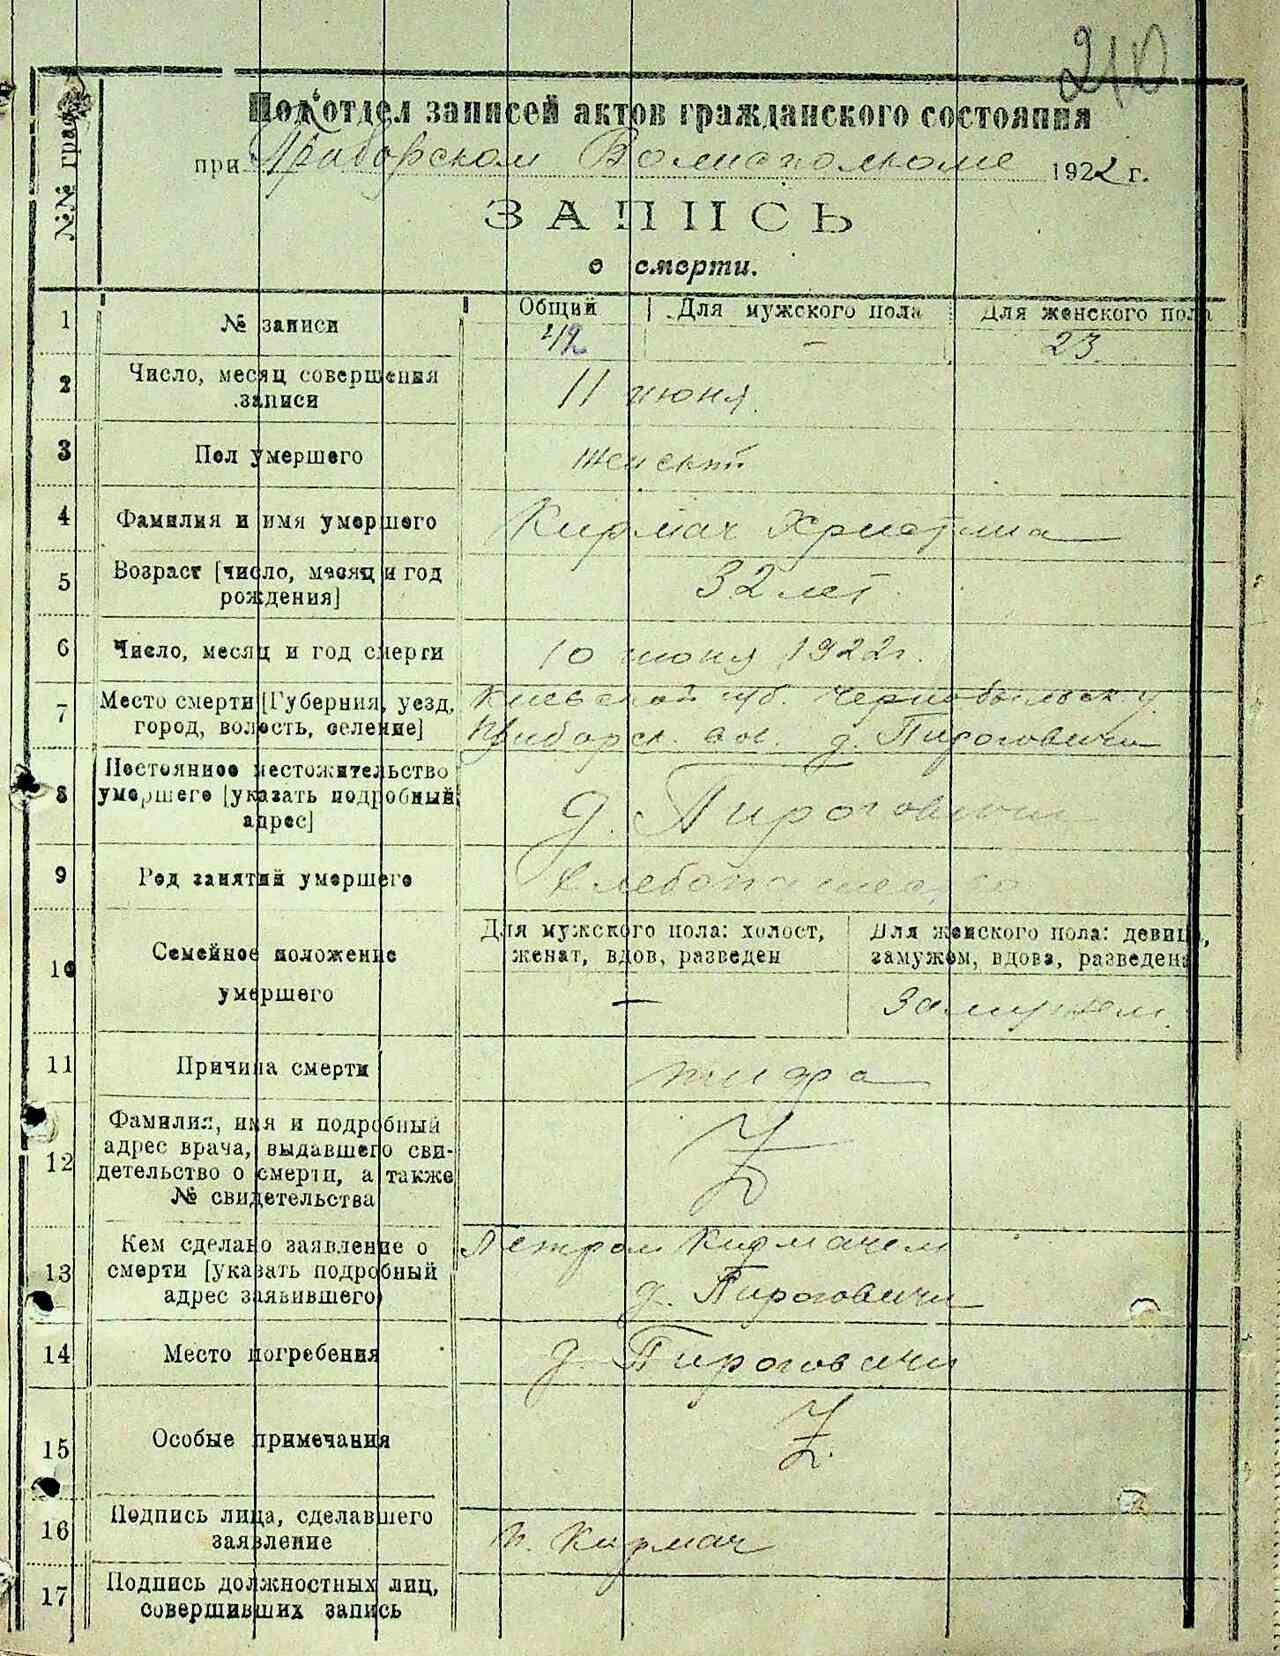 210
Подотдел записей актов гражданского состояния
при Приборском Волисполкоме 1922 г.
ЗАПИСЬ
о смерти.
№№ граф
1 № записи Общий Для мужского пола Для женского пола
42 — 23
2 Число, месяц совершения
записи
11 июня
3 Пол умершего женский
4 Фамилия и имя умершего Кирмач Христина
5 Возраст [число, месяц и год
рождения]
32 лет
6 Число, месяц и год смерти 10 июня 1922 г.
7 Место смерти [Губерния, уезд,
город, волость, селение]
Киевской губ. Чернобыльск у.
Приборск. вол. д. Пироговичи
8 Постоянное местожительство
умершего [указать подробный
адрес]
д. Пироговичи
9 Род занятий умершего хлебопашество
10 Семейное положение
умершего
Для мужского пола: холост,
женат, вдов, разведен
—
Для женского пола: девица,
замужем, вдова, разведена
Замужем.
11 Причина смерти тифа
12 Фамилия, имя и подробный
адрес врача, выдавшего сви-
детельство о смерти, а также
№ свидетельства
13 Кем сделано заявление о
смерти [указать подробный
адрес заявившего]
Петром Кирмачем
д. Пироговичи
14 Место погребения д. Пироговичи
15 Особые примечания
16 Подпись лица, сделавшего
заявление
П. Кирмач
17 Подпись должностных лиц,
совершивших запись